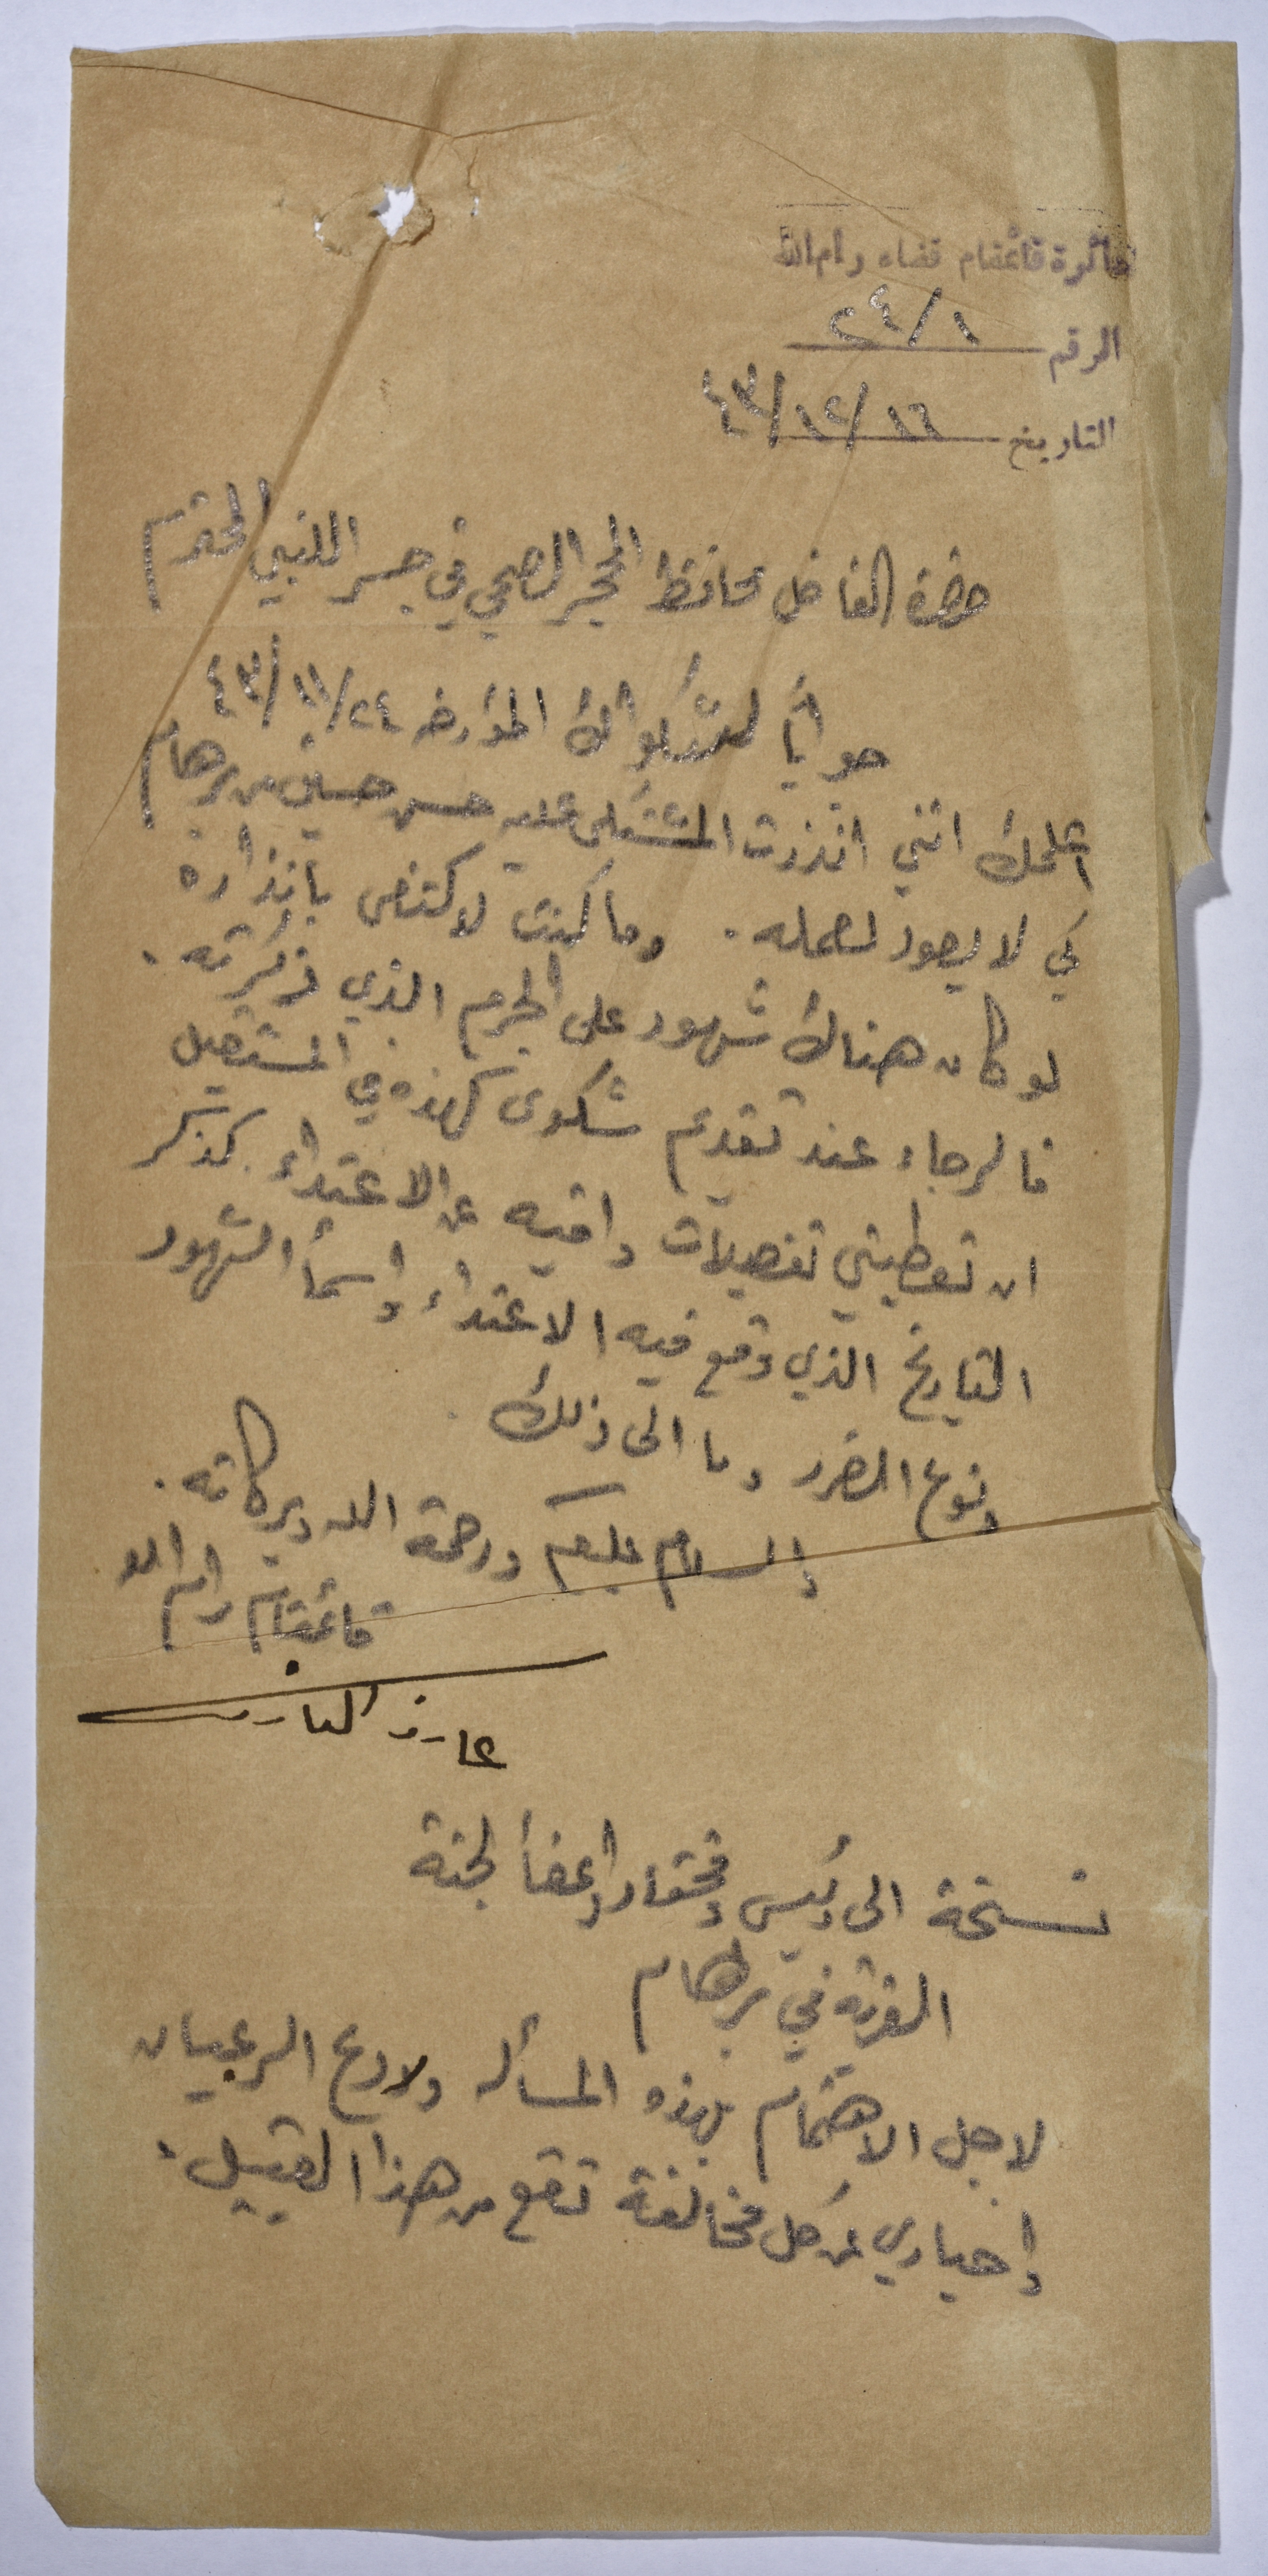 دائرة قائمقام قضاء رام الله
الرقم ٢٤/١
التاريخ ١٦/١٢/٤٣
حضرة الفاضل محافظ المحجر الصحي في جسر اللنبي المحترم
جواباً لشكواك المؤرخه ٢٤/١١/٤٣
اعلمك انني انذرت المشتكى عليه حسن حسين من برهام
كي لا يعود لعمله. وما كنت لاكتفى بانذاره
لو كان هناك شهود على الجرم الذي ذكرته.
فالرجاء عند تقديم شكوى كهذه في المستقبل
ان تعطيني تفصيلات وافيه عن الاعتداء كذكر
التاريخ الذي وقع فيه الاعتداء واسمأ الشهود
ونوع الضرر وما الى ذلك.
والسلام عليكم ورحمة الله وبركاته.
قائمقام رام الله
عارف العارف
نسخة الى رئيس ومختار واعضأ لجنة
القرية في برهام
لاجل الاهتمام بهذه المسأله ولردع الرعيان
واخباري عن كل مخالفة تقع من هذا القبيل.